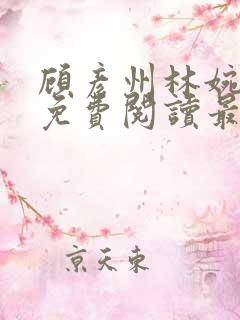 顾彦州林婉
免費閱讀最
京天東